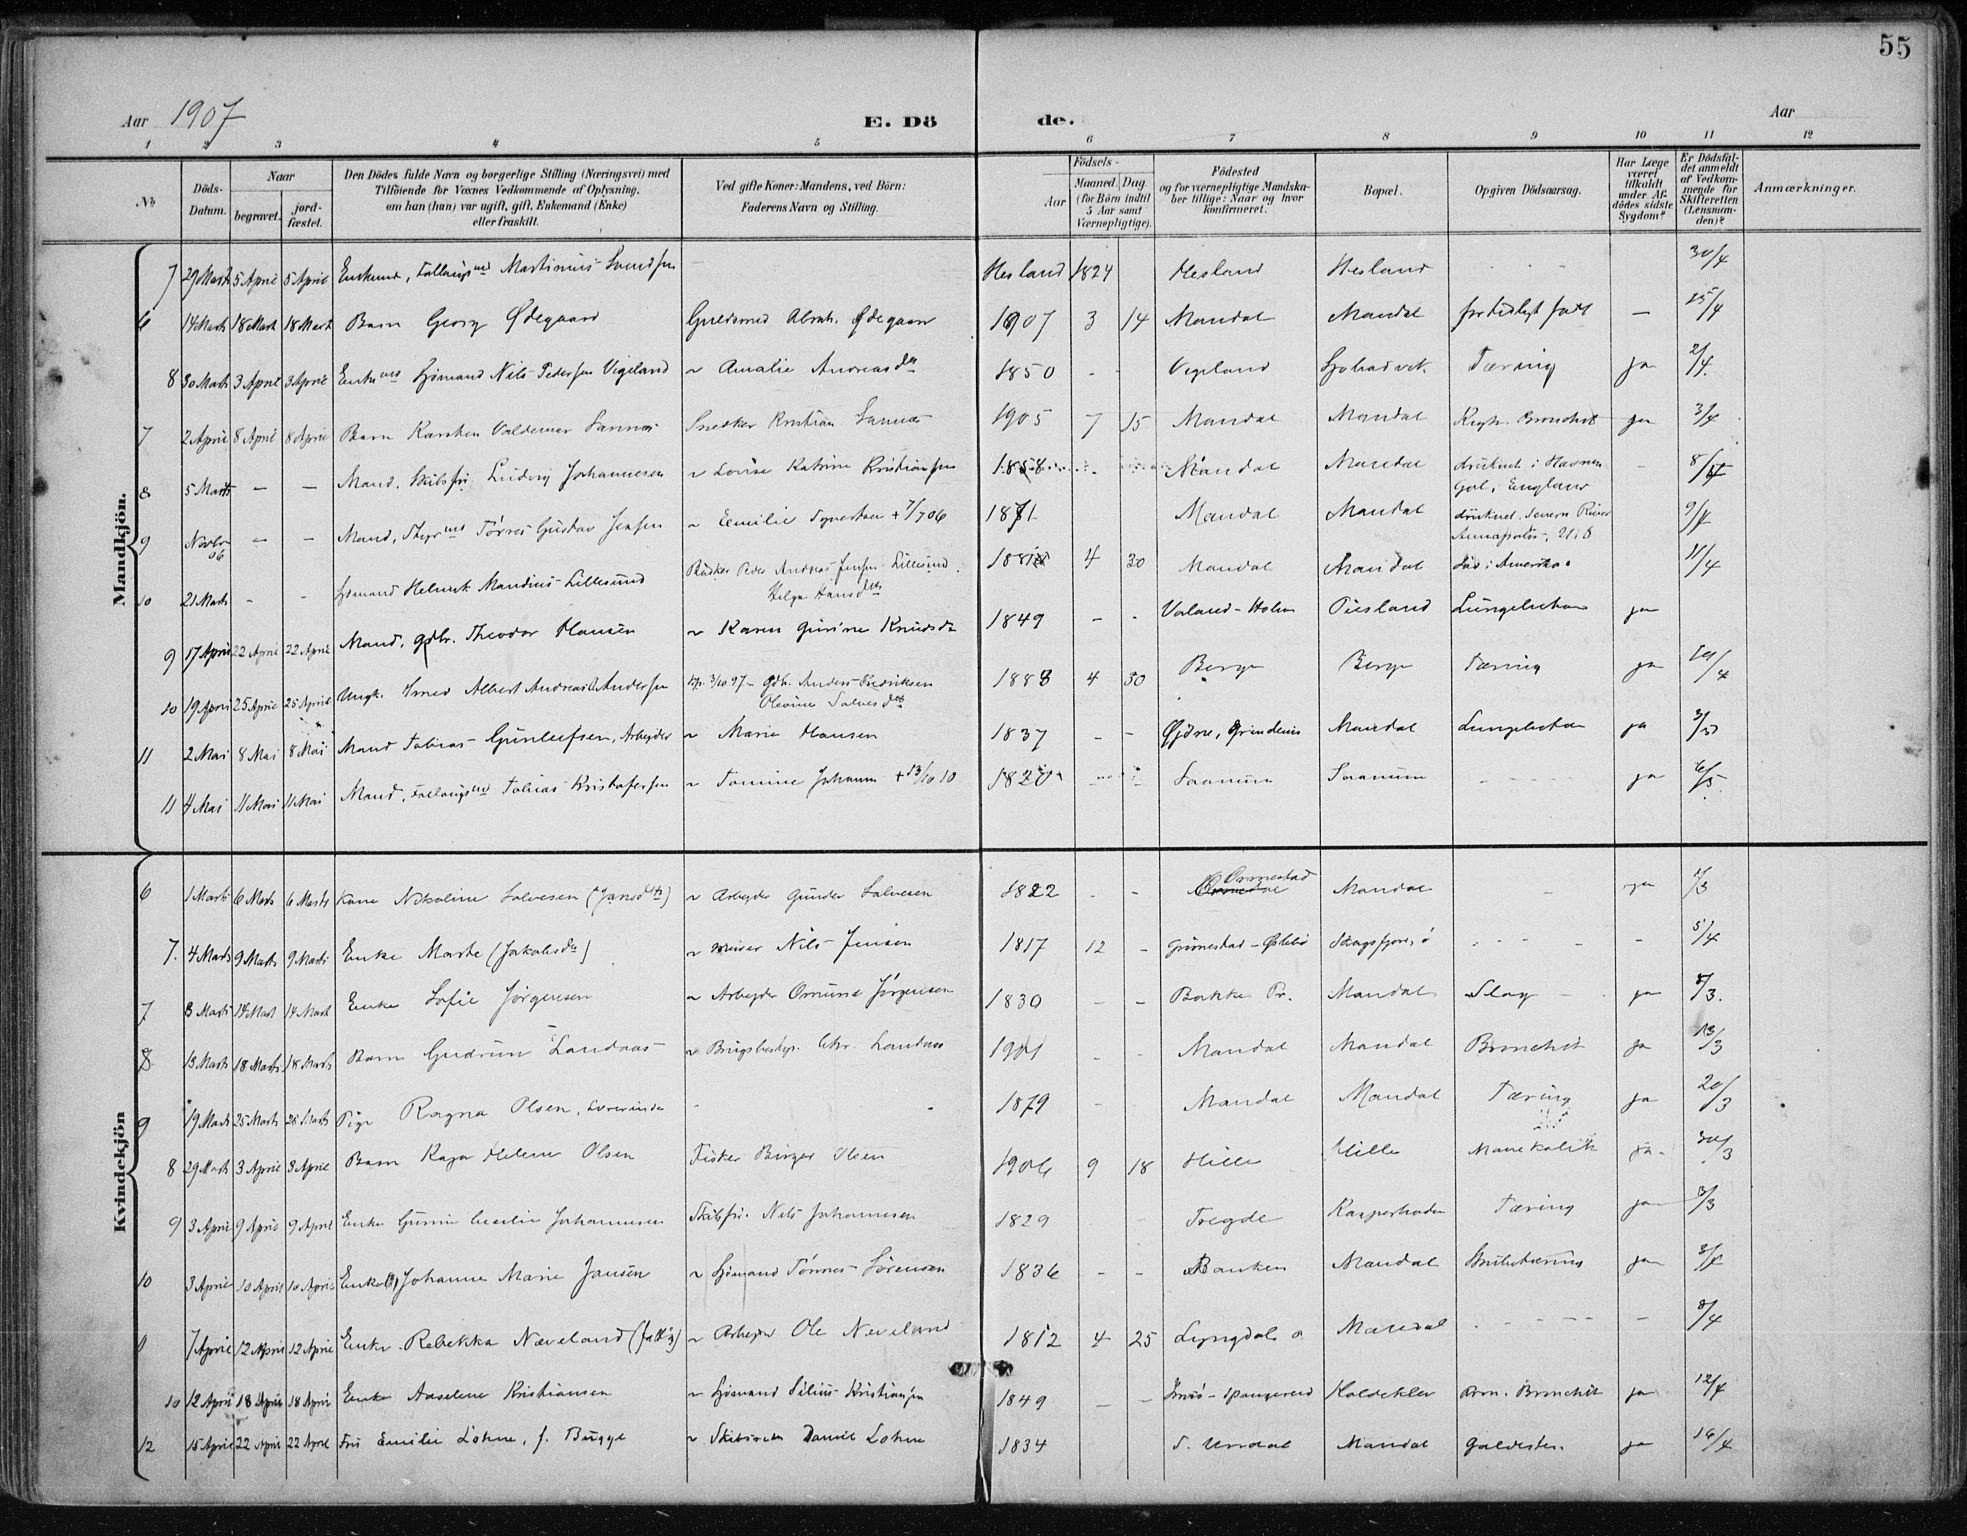 55
Aar 1907
E. Dö
de.
Aar
1 2 3 4 5 6 7 8 9 10 11 12
No
Döds-Datum.
Naar
begravet.
jord-fæstet.
Den Dödes fulde Navn og borgerlige Stilling (Næringsvei) med
Tilföiende for Voxnes Vedkommende af Oplysning,
om han (hun) var ugift, gift, Enkemand (Enke)
eller fraskilt.
Ved gifte Koner: Mandens, ved Börn:
Faderens Navn og Stilling.
Födsels-
Aar
Maaned. Dag.
(for Börn indtil
5 Aar samt
Værnepligtige).
Födested
og for værnepligtige Mandska-
ber tillige: Naar og hvor
konfirmeret.
Bopæl.
Opgiven Dödsaarsag.
Har Læge
været
tilkaldt
under Af-
dödes sidste
Sygdom?
Er Dödsfal-
det anmeldt
af Vedkom-
mende for
Skifteretten
(Lensman-
den)?
Anmærkninger.
Mandkjön.
7 29 Marts 5 April 5 April Enkem, Fattigs Martinius Svendsen Hesland 1824 Hesland Hesland 30/4
6 14 Marts 18 Marts 18 Marts Barn Georg Ødegaard Guldsmed Abrah. Ødegaard 1907 3 14 Mandal Mandal for tidligt født — 25/4
8 30 Marts 3 April 3 April Enkem Sjömand Nils Pedersen Vigeland ~ Amalie Andreasdtr 1850 - - Vigeland Tæring ja 2/4
7 2 April 8 April 8 April Barn Karsten Valdemar Sannæs Snedker Kristian Sannæs 1905 7 15 Mandal Mandal Bronchit ja 3/4
8 5 Marts — — Mand, Skibsfø. Ludvig Johannesen ~ Lovise Katrine Kristiansen 1858 Mandal Mandal druknet i Havnen
Gol, England 8/4
9 Novbr 06 — — Mand, Styrm Tørres Gustav Jensen ~ Emilie 1871 Mandal Mandal druknet, Severn River
Annapolis, U.S 9/4
10 21 Marts - - Sjömand Helmik Mandius Lillesund Bødker Peder Andreas Jensen Lillesund.
Helga Hansdtr 4 30 Mandal Mandal død i Amerika 11/4
9 17 April 22 April 22 April Mand, gdbr. Theodor Hansen ~ Karen Gurine Knudsdtr 1849 - - Valand-Holum Lungebetæn ja
10 19 April 25 April 25 April Ungk. Albert Andreas Andersen Gdb. Anders Fredriksen
Olevine Salvesdtr 1883 4 30 Berge Berge Tæring ja /4
11 2 Mai 8 Mai 8 Mai Mand Tobias Gunleifsen, Arbeyder ~ Marie Hansen 1837 - - Grindem Mandal Lungebetæn ja 3/5
11 4 Mai 11 Mai 11 Mai Mand, Tobias Kristofersen ~ Tomine Johanne + 13/10 10 1820 Saanum Saanum ja 6/5
Kvindekjön
6 1 Marts 6 Marts 6 Marts Kone Nikoline Salvesen (Jansdtr) ~ Arbeyder Gunder Salvesen 1822 - - Ormestad Mandal ja /3
7 4 Marts 9 Marts 9 Marts Enke Marte (Jakobsdtr) ~ Nils Jensen 1817 12 - Grimestad - 5/4
7 8 Marts 14 Marts 14 Marts Enke Sofie Jörgensen ~ Arbeyder Omund Jörgensen 1830 - - Bakke Pr. Mandal Slag ja 8/3
8 13 Marts 18 Marts 18 Marts Barn Gudrun Landaas ~ Brugsbestyr. Chr. Landaas 1901 - - Mandal Mandal Bronchit ja 13/3
9 19 Marts 25 Marts 25 Marts Pige Ragna Olsen, Lærerinde 1879 - - Mandal Mandal Tæring ja 20/3
8 29 Marts 3 April 3 April Barn Kaja Helene Olsen Fisker Birger Olsen 1906 9 18 Hille Hille Mavekolik ja 30/3
9 3 April 9 April 9 April Enke Gurine Cecilie Johannesen Skibsfø. Nils Johannesen 1829 Tregde Tæring ja 3/3
10 3 April 10 April 10 April Enke Johanne Marie Jansen ~ Sjömand Tönnes Sörensen 1836 - - Banken Mandal ja 3/4
11 7 April 12 April 12 April Enke Rebekka Næveland (fattig) ~ Arbeyder Ole Neveland 1812 4 25 Lyngdal Mandal - 8/4
10 12 April 18 April 18 April Enke Aaselene Kristiansen ~ Sjömand Silius Kristiansen 1849 - - Spangereid Kron. Bronchit ja 12/4
12 15 April 22 April 22 April Fru Emilie Lohne, f. Bugge ~ Daniel Lohne 1834 S. Undal Mandal Galdesten ja 16/4